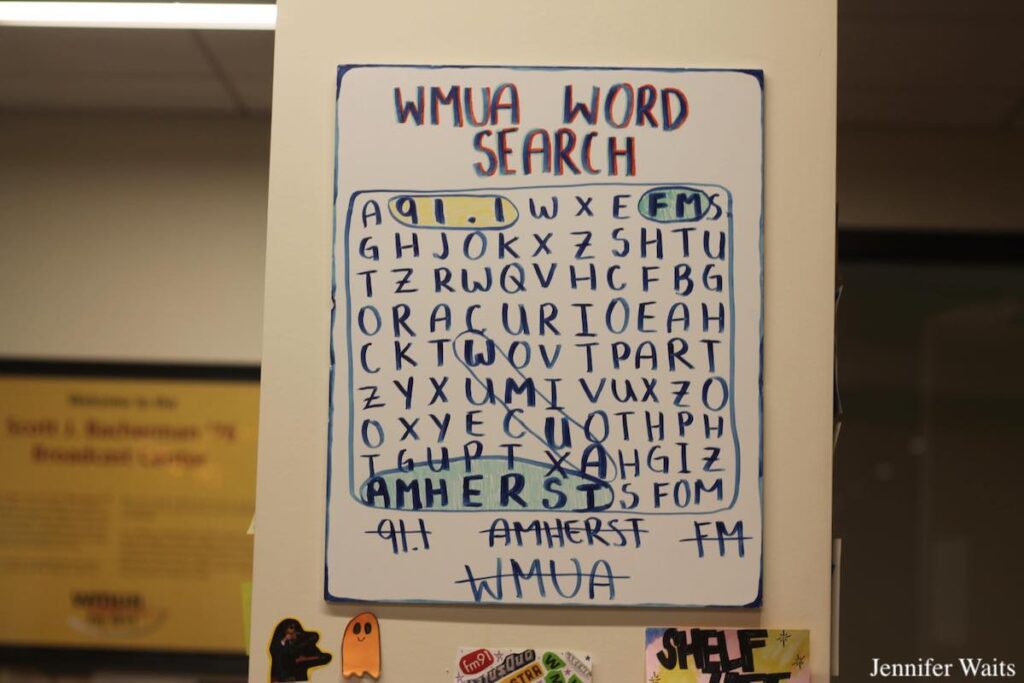 WMUA WORD
SEARCH
A 9 1 . 1 W X E F M S
G H J O K X Z S H T U
T Z R W Q V H C F B G
O R A C U R I O E A H
C K T W O V T P A R T
Z Y X U M I V U X Z O
O X Y E C U O T H P H
T G U P T X A H G I Z
A M H E R S T S F O M
91.1 AMHERST FM
WMUA
Welcome to the
Scott J. Bacherman '75
Broadcast Center
WMUA
fm91
SHELF
Jennifer Waits